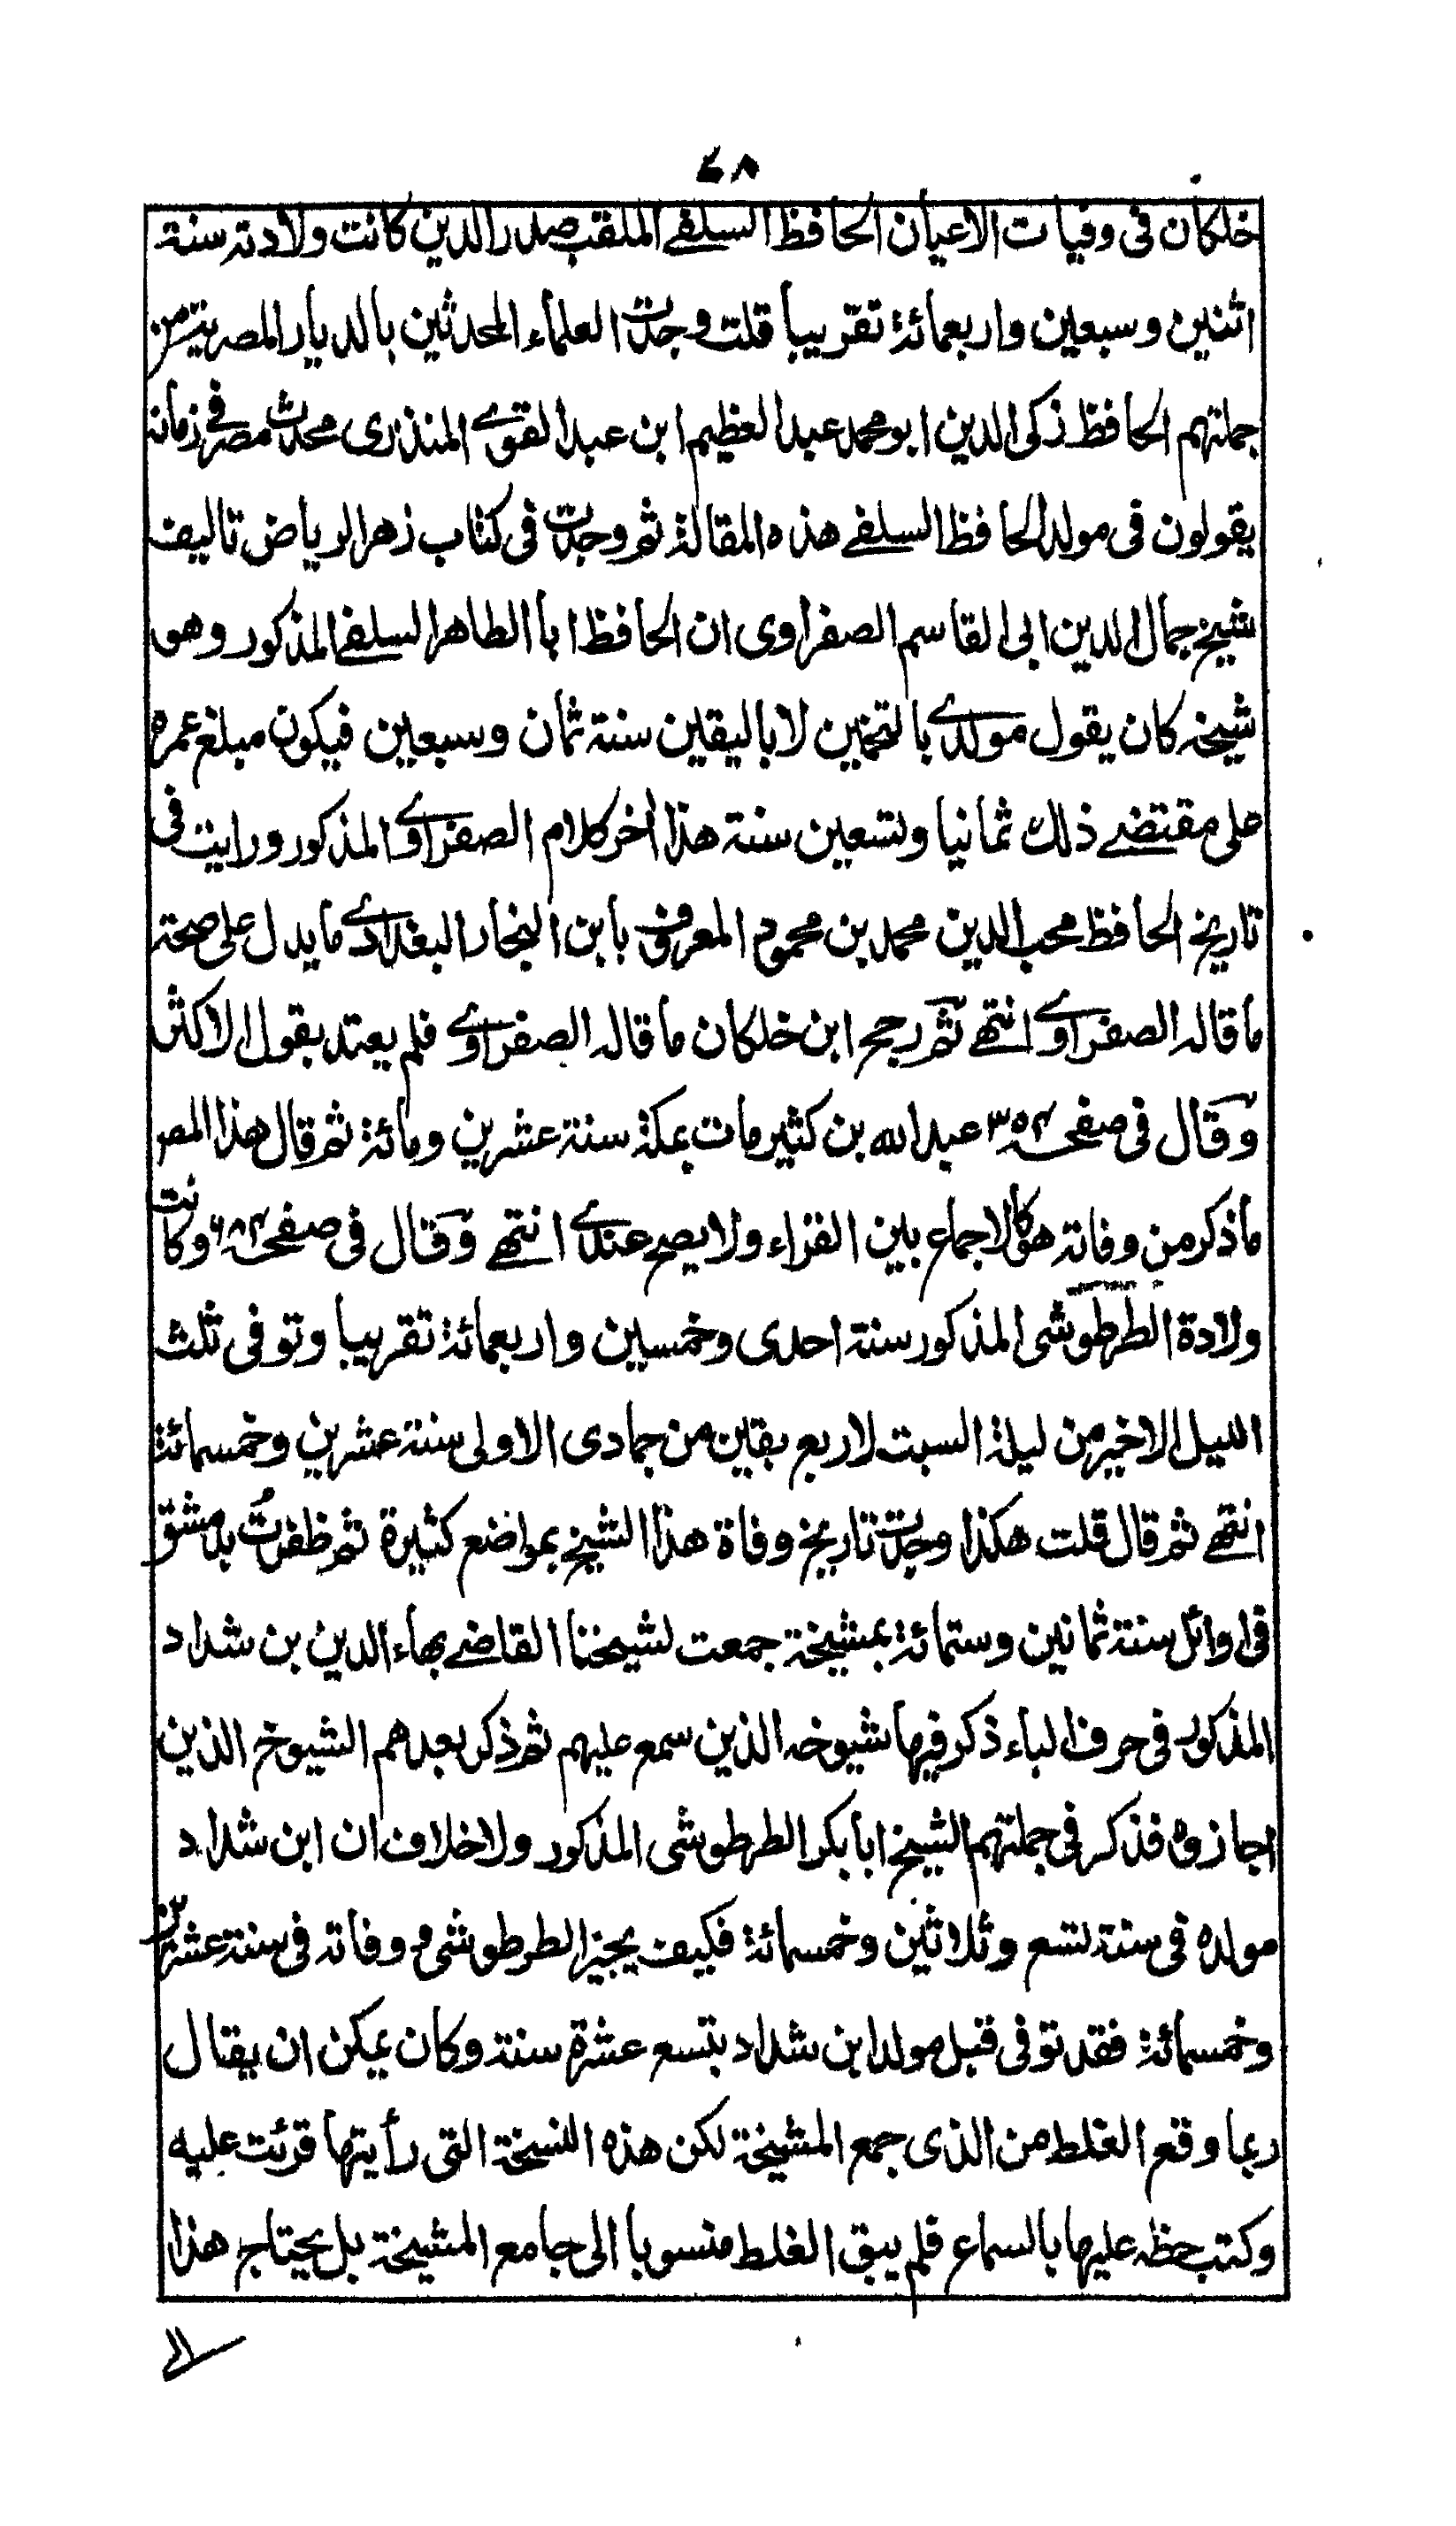 ٤٨
خلكان فى وفيات الاعيان الحافظ السلفے الملقب صدر الدين كانت ولادته سنة
اثنين وسبعين واربعمائة تقريبا قلت وجدت العلماء المحدثين بالديار المصرية من
جملتهم الحافظ زكى الدين ابو محمد عبد العظيم ابن عبد القوے المنذرى محدث مصر فے زمانه
يقولون فى مولد الحافظ السلفے هذه المقالة ثم وجدت فى كتاب زهر الرياض تاليف
شيخ جمال الدين ابى القاسم الصفراوى ان الحافظ ابا الطاهر السلفے المذكور وهو
شيخه كان يقول مولدے بالتخمين لا باليقين سنة ثمان وسبعين فيكون مبلغ عمره
على مقتضے ذلك ثمانيا وتسعين سنة هذا أخر كلام الصفراوے المذكور ورايت فى
تاريخ الحافظ محب الدين محمد بن محمود المعروف بابن النجار البغدادے ما يدل على صحة
ما قاله الصفراوے انتهے ثم رجح ابن خلكان ما قاله الصفراوے فلم يعتد بقول الاكثر
وقال فى صفحہ ٣٥٢ عبد الله بن كثير مات بمكة سنة عشرين ومائة ثم قال هذا المصر
ما ذكر من وفاته هو كالاجماع بين القراء ولا يصح عندے انتهے وقال فى صفحہ ٦٨٢ وكانت
ولادة الطرطوشى المذكور سنة احدى وخمسين واربعمائة تقريبا وتوفى ثلث
الليل الاخير من ليلة السبت لاربع بقين من جمادى الاولى سنة عشرين وخمسمائة
انتهے ثم قال قلت هكذا وجدت تاريخ وفاة هذا الشيخ بمواضع كثيرة ثم ظفرتُ بدمشق
فى اوائل سنة ثمانين وستمائة بمشيخة جمعت لشيخنا القاضے بهاء الدين بن شداد
المذكور فى حرف الباء ذكر فيها شيوخه الذين سمع عليهم ثم ذكر بعدهم الشيوخ الذين
اجازوه فذكر فى جملتهم الشيخ ابا بكر الطرطوشى المذكور ولا خلاف ان ابن شداد
مولده فى سنة تسع وثلاثين وخمسمائة فكيف يجيز الطرطوشى ووفاته فى سنة عشرين
وخمسمائة فقد توفى قبل مولد ابن شداد بتسع عشرة سنة وكان يمكن ان يقال
ربما وقع الغلط من الذى جمع المشيخة لكن هذه النسخة التى رأيتها قرئت عليه
وكتب خطه عليها بالسماع فلم يبق الغلط منسوبا الى جامع المشيخة بل يحتاج هذا
الے